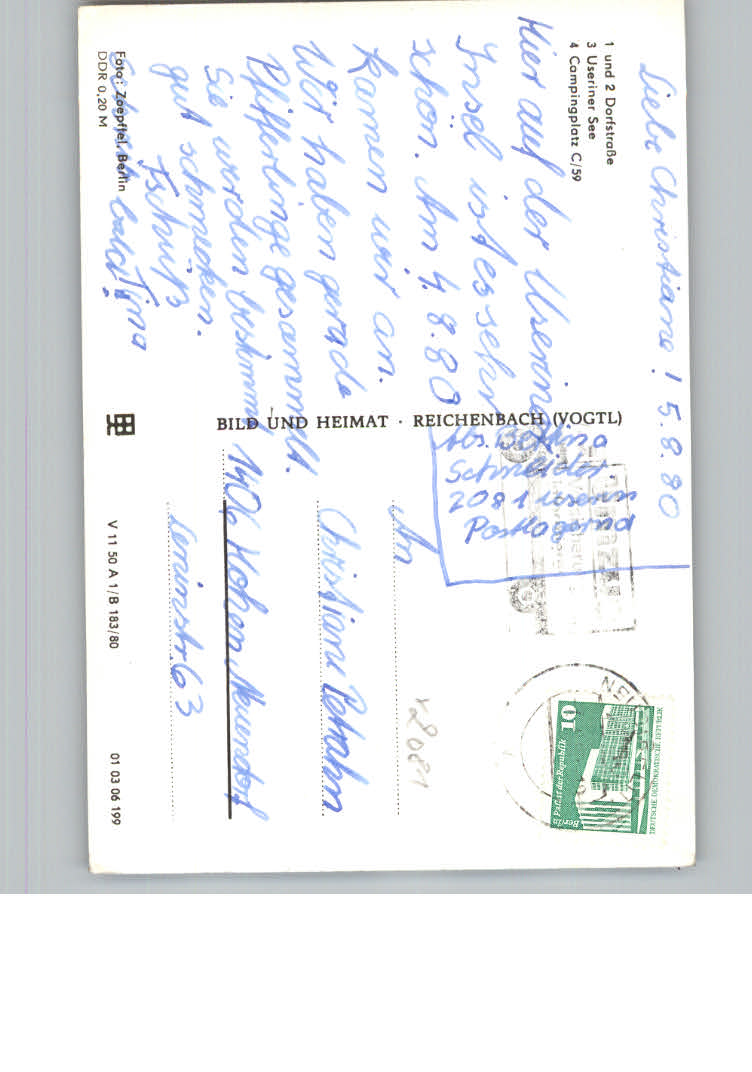 Liebe Christiane! 5.8.80
1 und 2 Dorfstraße
3 Useriner See
4 Campingplatz C/59
Hier auf der Useriner
Insel ist es sehr
schön. Am 4.8.80
kamen wir an.
Wir haben gerade
Pfifferlinge gesammelt.
Sie werden bestimmt
gut schmecken.
Tschüß
bald! Tina
Foto: Zoepffel, Berlin
DDR 0,20 M
BILD UND HEIMAT · REICHENBACH (VOGTL)
V 11 50 A 1/B 183/80
01 03 06 199
Abs. Bettina
Schneider
2081 Userin
Postlagernd
An
Christiane
1406 Hohen Neuendorf
Leninstr. 63
x2081
NEU
10
Palast der Republik
Berlin
DEUTSCHE DEMOKRATISCHE REPUBLIK